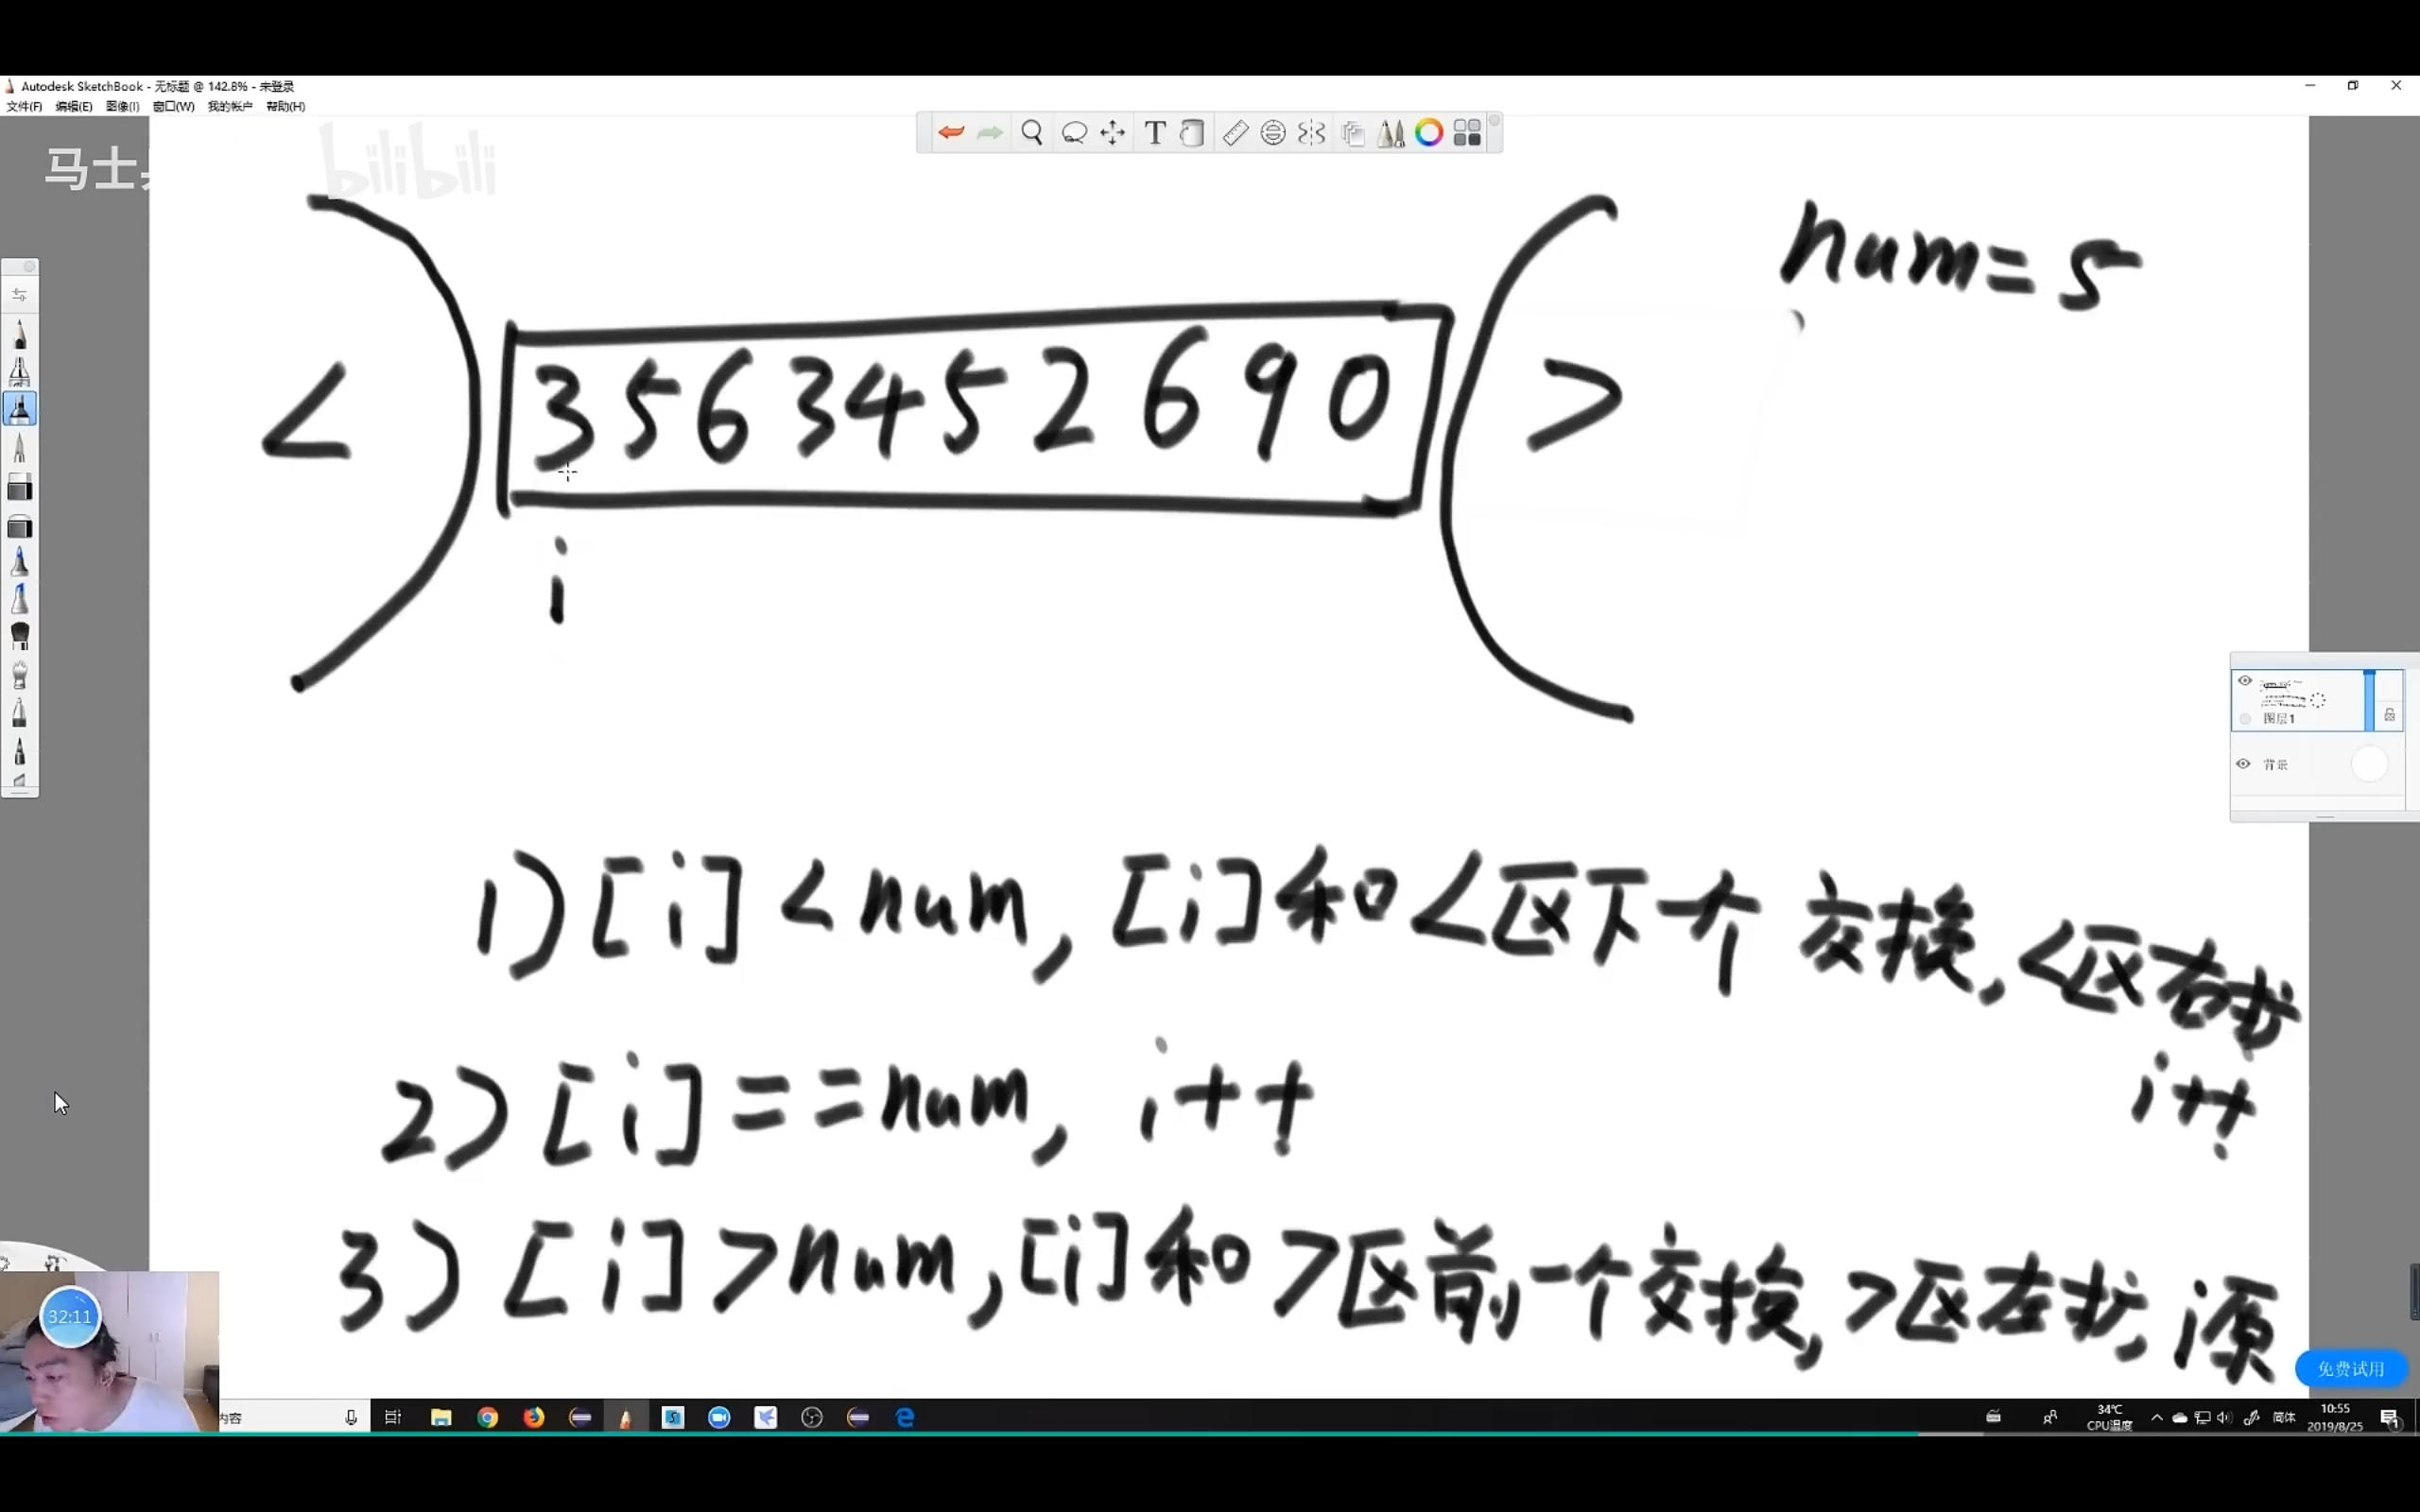 Autodesk SketchBook - 无标题 @ 142.8% - 未登录
文件(F) 编辑(E) 图像(I) 窗口(W) 我的帐户 帮助(H)
T
马士
bilibili
num=5
< 3 5 6 3 4 5 2 6 9 0 >
i
图层1
背景
1) [i] < num, [i]和<区下个 交换, <区右扩
i++
2) [i] == num, i++
3) [i] > num, [i]和>区前一个交换, >区左扩, i原
32:11
免费试用
内容
34℃
CPU温度
简体
10:55
2019/8/25
1